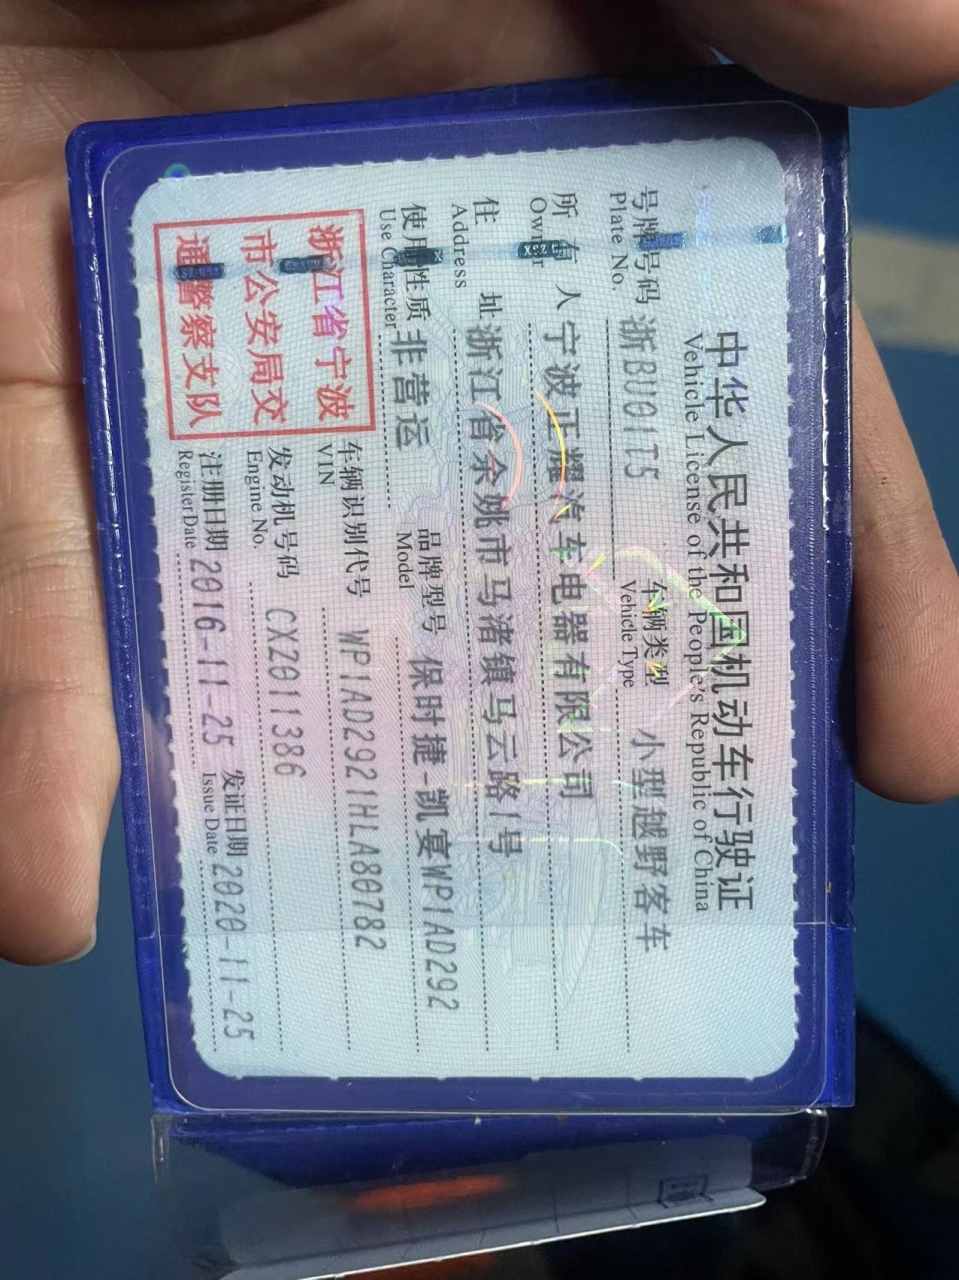 中华人民共和国机动车行驶证
Vehicle License of the People's Republic of China
号牌号码 浙BU01T5 车辆类型 小型越野客车
Plate No. Vehicle Type
所有人 宁波正耀汽车电器有限公司
Owner
住址 浙江省余姚市马渚镇马云路1号
Address
使用性质 非营运 品牌型号 保时捷-凯宴WP1AD292
Use Character Model
浙江省宁波
市公安局交
通警察支队
车辆识别代号 WP1AD2921HLA80782
VIN
发动机号码 CXZ011386
Engine No.
注册日期 2016-11-25 发证日期 2020-11-25
Register Date Issue Date